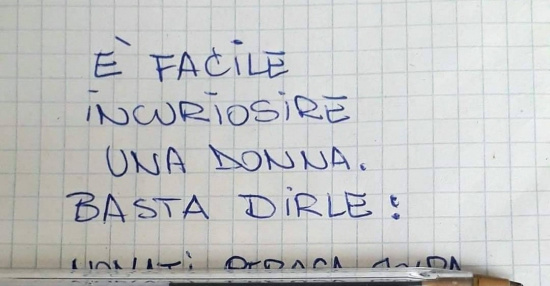 È FACILE
INCURIOSIRE
UNA DONNA.
BASTA DIRLE: